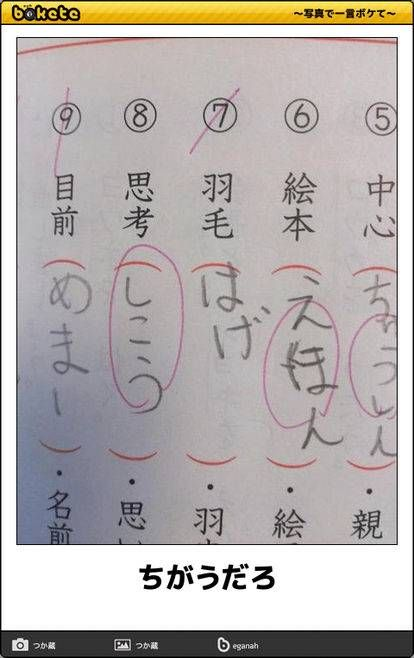 bokete
～写真で一言ボケて～
⑤ 中心 （ちゅうしん） ・親
⑥ 絵本 （えほん） ・絵
⑦ 羽毛 （はげ） ・羽
⑧ 思考 （しこう） ・思い
⑨ 目前 （めまー） ・名前
ちがうだろ
つか蔵
つか蔵
eganah